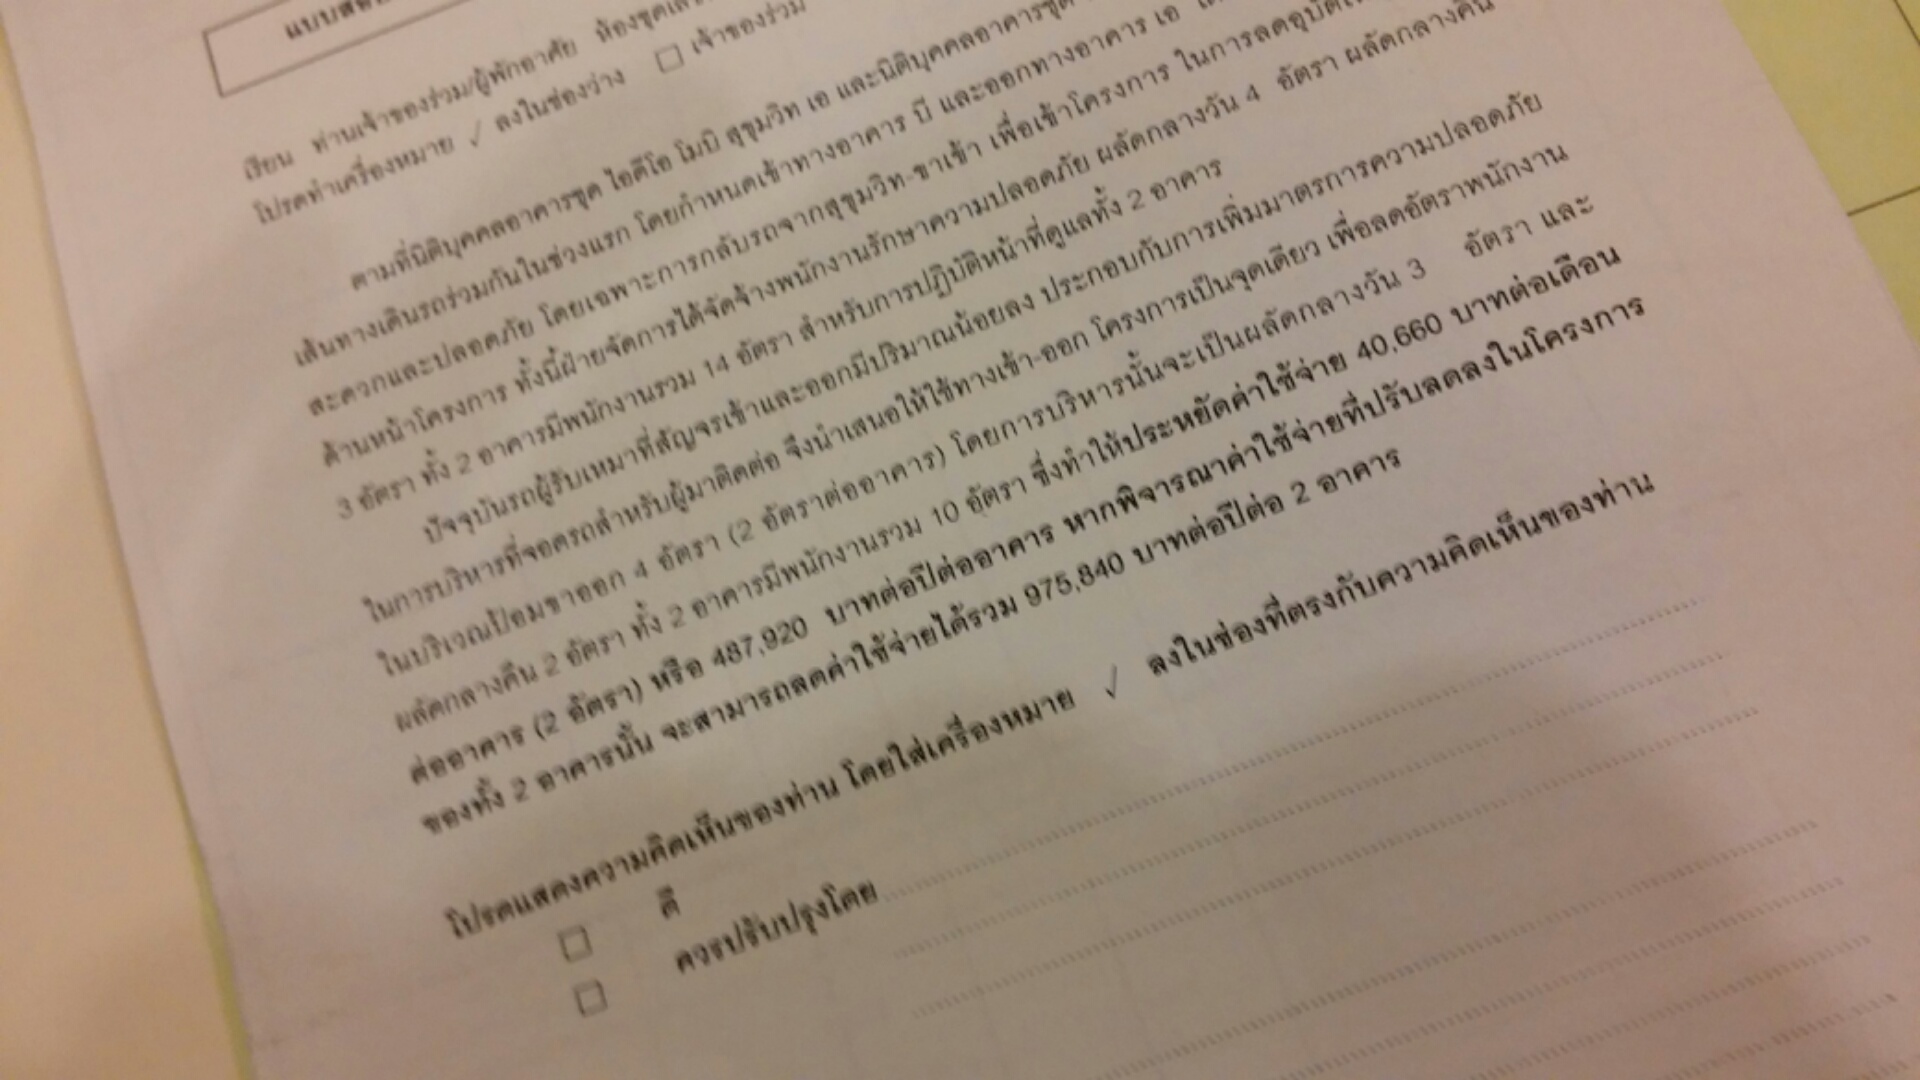 แบบสอบ
เรียน ท่านเจ้าของร่วม/ผู้พักอาศัย ห้องชุดเลขที่
โปรดทำเครื่องหมาย √ ลงในช่องว่าง □ เจ้าของร่วม
ตามที่นิติบุคคลอาคารชุด ไอดีโอ โมบิ สุขุมวิท เอ และนิติบุคคลอาคารชุด
เส้นทางเดินรถร่วมกันในช่วงแรก โดยกำหนดเข้าทางอาคาร บี และออกทางอาคาร เอ
สะดวกและปลอดภัย โดยเฉพาะการกลับรถจากสุขุมวิท-ขาเข้า เพื่อเข้าโครงการ ในการลดอุบัติเหตุ
ด้านหน้าโครงการ ทั้งนี้ฝ่ายจัดการได้จัดจ้างพนักงานรักษาความปลอดภัย ผลัดกลางวัน 4 อัตรา ผลัดกลางคืน
3 อัตรา ทั้ง 2 อาคารมีพนักงานรวม 14 อัตรา สำหรับการปฏิบัติหน้าที่ดูแลทั้ง 2 อาคาร
ปัจจุบันรถผู้รับเหมาที่สัญจรเข้าและออกมีปริมาณน้อยลง ประกอบกับการเพิ่มมาตรการความปลอดภัย
ในการบริหารที่จอดรถสำหรับผู้มาติดต่อ จึงนำเสนอให้ใช้ทางเข้า-ออก โครงการเป็นจุดเดียว เพื่อลดอัตราพนักงาน
ในบริเวณป้อมขาออก 4 อัตรา (2 อัตราต่ออาคาร) โดยการบริหารนั้นจะเป็นผลัดกลางวัน 3 อัตรา และ
ผลัดกลางคืน 2 อัตรา ทั้ง 2 อาคารมีพนักงานรวม 10 อัตรา ซึ่งทำให้ประหยัดค่าใช้จ่าย 40,660 บาทต่อเดือน
ต่ออาคาร (2 อัตรา) หรือ 487,920 บาทต่อปีต่ออาคาร หากพิจารณาค่าใช้จ่ายที่ปรับลดลงในโครงการ
ของทั้ง 2 อาคารนั้น จะสามารถลดค่าใช้จ่ายได้รวม 975,840 บาทต่อปีต่อ 2 อาคาร
โปรดแสดงความคิดเห็นของท่าน โดยใส่เครื่องหมาย √ ลงในช่องที่ตรงกับความคิดเห็นของท่าน
□ ดี
□ ควรปรับปรุงโดย